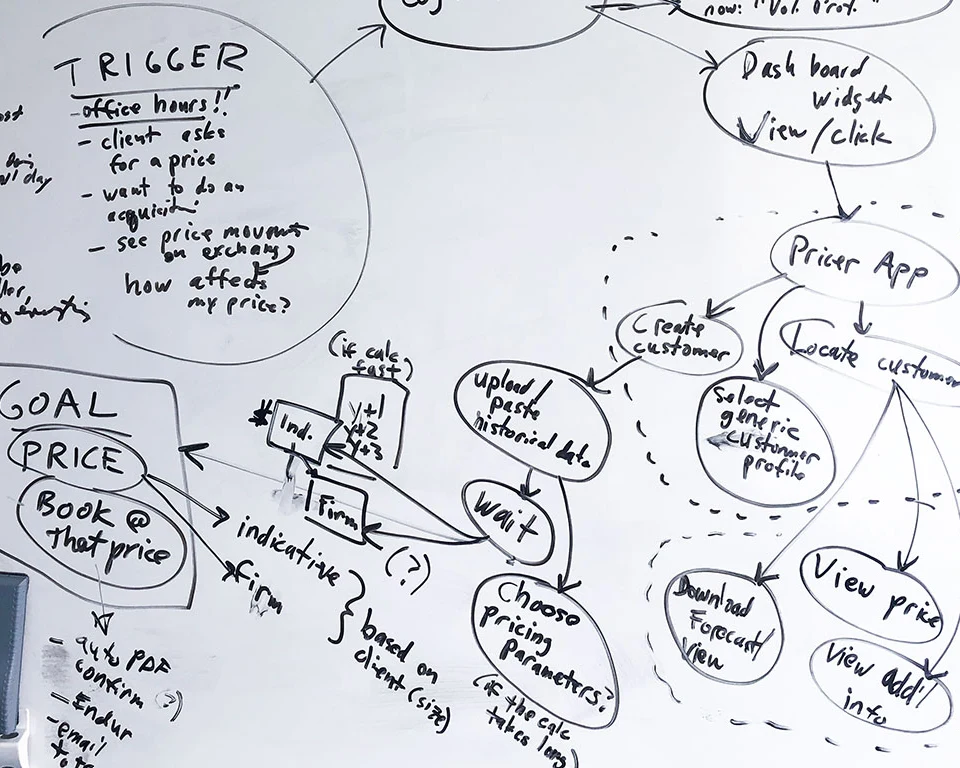 now: "Vol. Prof."
TRIGGER
- office hours!!
- client asks
for a price
- want to do an
- see price
on
how affects
my price?
ost
day
be
Dash board
widget
View/click
Pricer App
Create
customer
Locate customer
Select
generic
customer
profile
upload/
paste
historical data
wait
Choose
pricing
parameters?
(if the calc
takes long)
(if calc
fast)
Y+1
Y+2
Y+3
* Ind.
Firm
(?)
GOAL
PRICE
Book @
that price
indicative
firm
} based on
client (size)
- auto PDF
confirm (?)
- Endur
- email
Download
Forecast/
view
View price
View add'l
info